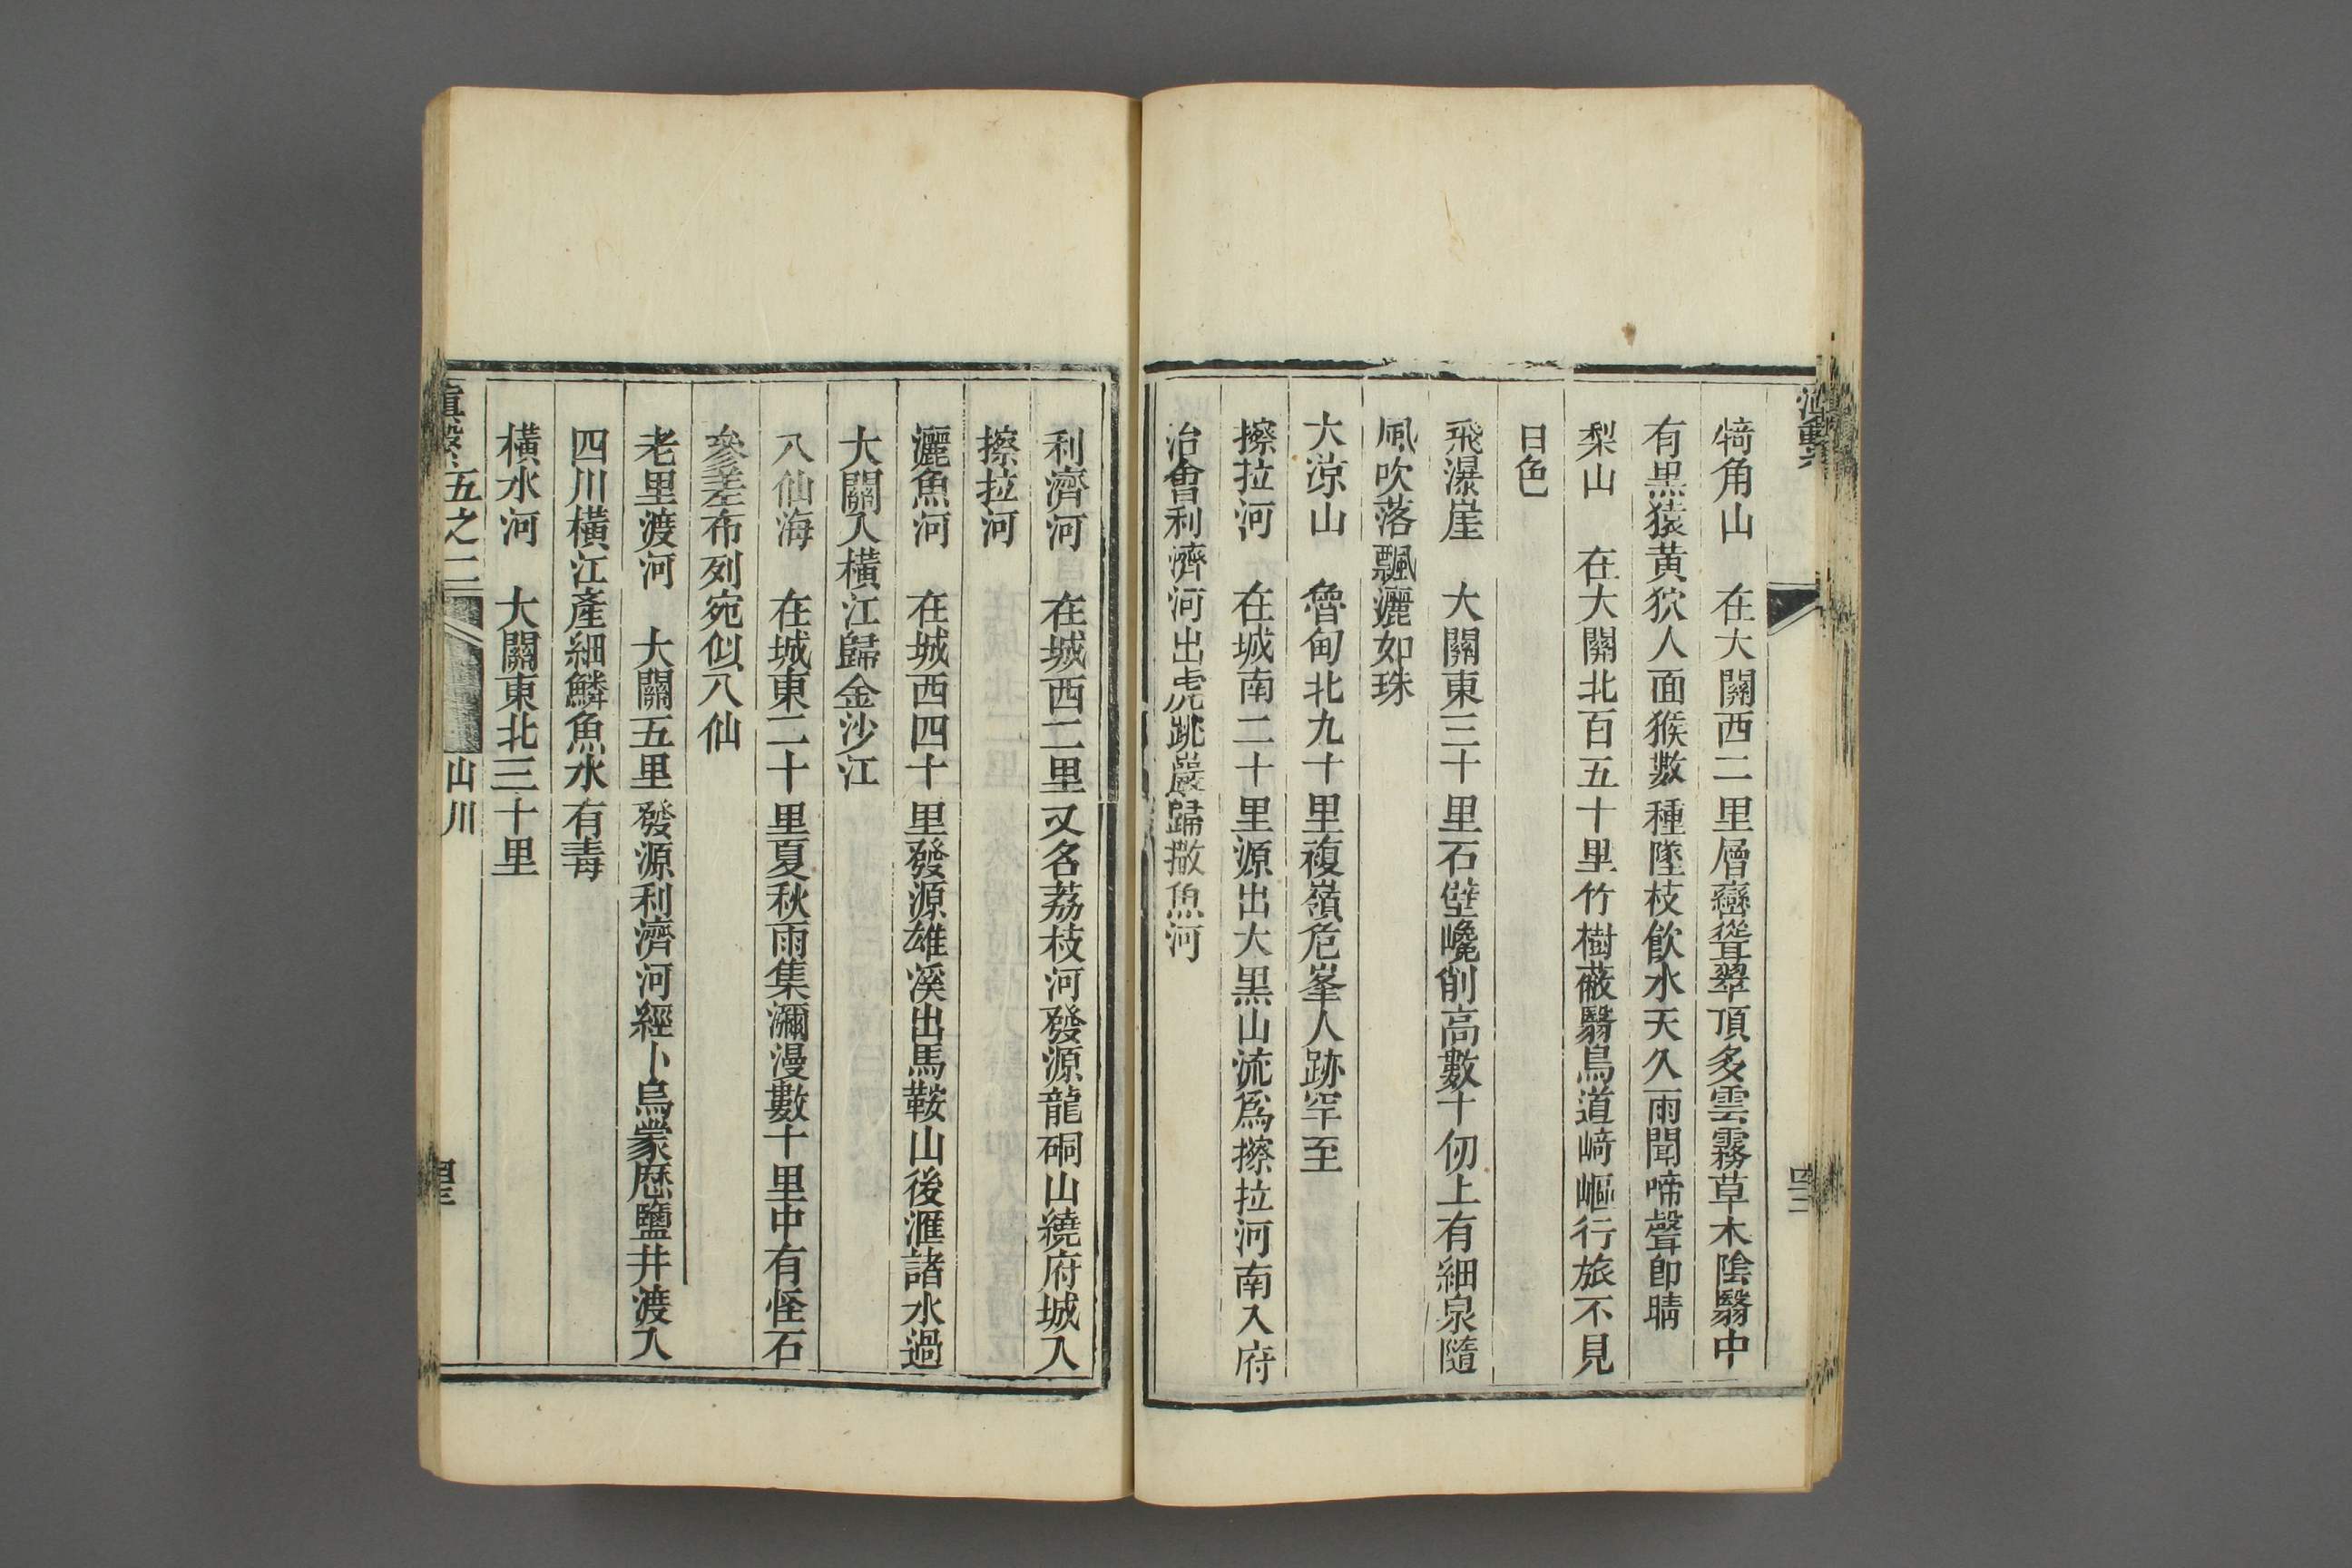 犄角山　在大關西二里層巒聳翠頂多雲霧草木陰翳中
有黑猿黃狖人面猴數種墜枝飲水天久雨聞啼聲卽晴
梨山　在大關北百五十里竹樹蔽翳鳥道崎嶇行旅不見
日色
飛瀑崖　大關東三十里石壁巉削高數十仞上有細泉隨
風吹落飄灑如珠
大涼山　魯甸北九十里複嶺危峯人跡罕至
擦拉河　在城南二十里源出大黑山流爲擦拉河南入府
治會利濟河出虎跳巖歸撒魚河
四二
利濟河　在城西二里又名荔枝河發源龍硐山繞府城入
擦拉河
灑魚河　在城西四十里發源雄溪出馬鞍山後滙諸水過
大關入橫江歸金沙江
八仙海　在城東二十里夏秋雨集瀰漫數十里中有怪石
參差布列宛似八仙
老里渡河　大關五里發源利濟河經卜烏蒙歷鹽井渡入
四川橫江產細鱗魚水有毒
橫水河　大關東北三十里
五之二　山川